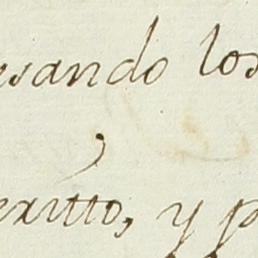 sando los
,
exitto, y p